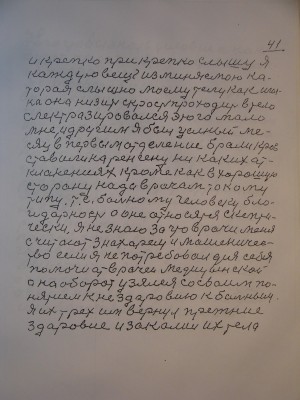 41
и крепко при крепко слышу. Я
каждую вещ изминяемою ка-
торая слышно моему телу как
она низин скрость проходит в тело
с лектразировался э юго мало
мне и другим я был у
сяц в первым отделение брали кров
ставили на ренгену ни каких ат-
клакениях кроме как в хорошую
сторану нада врачам токому
типу. т.е. болному человеку бло-
годарност а оне относятся скепти-
чески, я не знаю за что врачи меня
считают знахарем и машеничес-
тво если я не потребовал для себя
помочи ат врачей медицинской
а на оборот узялся со своим по-
нятием к не здоровию к больным.
Я их трех им вернул прежние
здоровие и закалил их тела